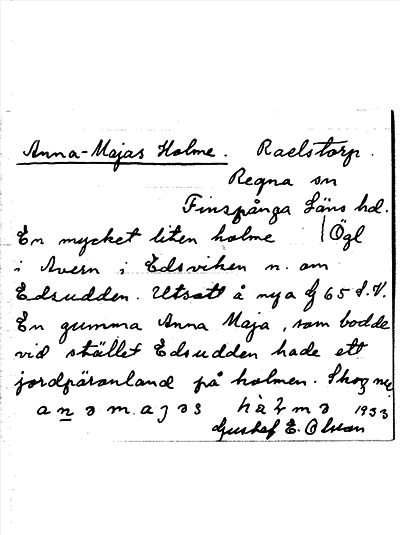 Anna-Majas Holme. Raelstorp.
Regna sn
Finspånga Läns hd.
En mycket liten holme | Ögl.
i Avern i Edsviken n. om
Edsudden. Utsatt å nya G 65 S.V.
En gumma Anna Maja, som bodde
vid stället Edsudden hade ett
jordpäronland på holmen. Skog nu.
1933
Gustaf E. Olson